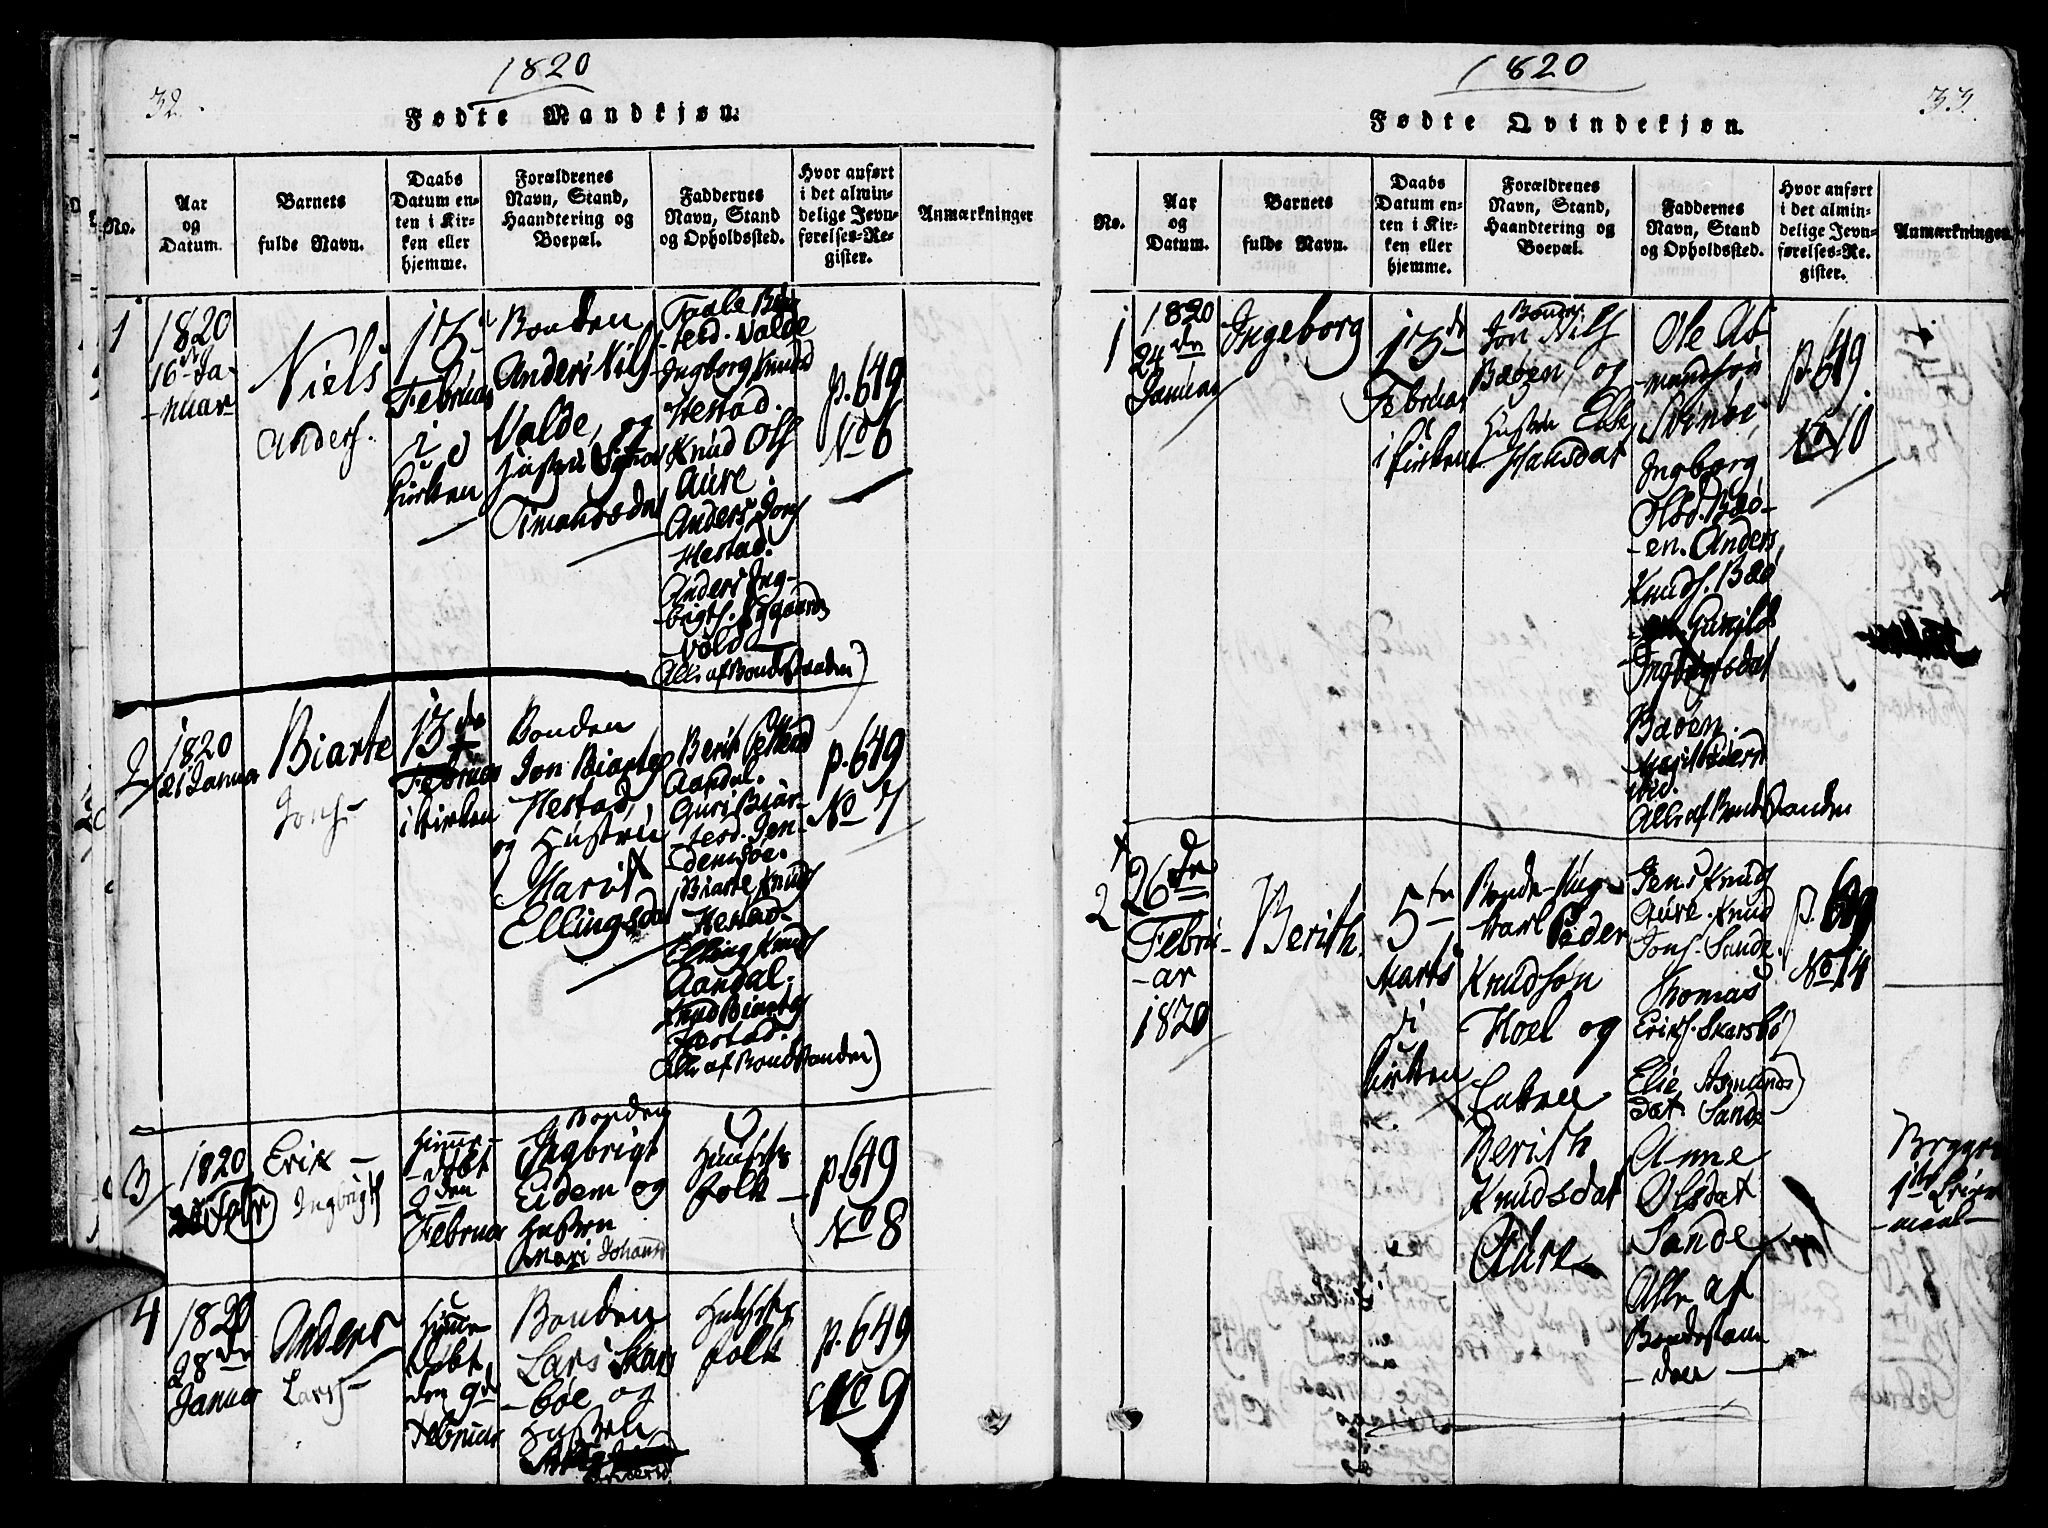 1820
32.
Fødte Mandkjøn.
No.
Aar
og
Datum.
Barnets
fulde Navn.
Daabs
Datum en-
ten i Kir-
ken eller
hjemme.
Forældrenes
Navn, Stand,
Haandtering og
Boepæl.
Faddernes
Navn, Stand
og Opholdssted.
Hvor anført
i det almin-
delige Jevn-
førelses-Re-
gister.
Anmærkninger
1
1820
16 de Ja-
-nuar
Niels
Anders.
13
Februar
i
Kirken
Bonden
Anders Nils
Valde, og
Hustru
Timansda
Ingborg Knuds
Hestad.
Knud Ols
Aure.
Anders Jons
Hestad.
Anders Ing-
-brigts.
-vold
Alle af Bondestanden)
p. 649
No 6
2
1820
21 Januar
Biarte
Jons-
13 de
Februar
i Kirken
Bonden
Jon Biarte
Hestad,
og Hustru
Marit
Ellingsda
Berit
Aandal.
Guri Biar-
-tesd. Jen-
demsøe.
Biarte Knuds
Hestad
Elling Knuds
Aandal.
Knud Biartes
Hestad.
Alle af Bondestanden)
p. 649
No 7
3
1820
Erik -
Ingbrigts
Himme-
-døbt
den
Februar
Bonden
Ingbrigt
Eidem og
Hustru
Mari Johans
folk
p. 649
No 8
4
1820
28 de
Januar
Anders
Lars-
Himme
døbt
den 9d
Februar
Bonden
Lars Skars
-bøe og
Hustru
folk
p. 649
No 9
1820
33.
Fødte Qvindekjøn.
No.
Aar
og
Datum.
Barnets
fulde Navn.
Daabs
Datum en-
ten i Kir-
ken eller
hjemme.
Forældrenes
Navn, Stand,
Haandtering og
Boepæl.
Faddernes
Navn, Stand
og Opholdssted.
Hvor anført
i det almin-
delige Jevn-
førelses-Re-
gister.
Anmærkninger
1
1820
24 de
Januar
Ingeborg
13 de
Februar
i Kirken
Bonden
Jon Nils
Baøen og
Hustru Else
Hansdat
Ole As-
mundsøn
Svinøe,
Ingborg
Olsd. Baø-
-en. Anders
Knuds. Baø
Gunild
Baøen.
ibid.
Alle af Bondestanden
p. 649.
No 10
2
26 de
Febru-
-ar
1820
Berith.
5 te
Marts
i
Kirken
Bonde-Ung-
karl Peder
Knudsøn
Hoel og
Enken
Berith
Knudsdat
Aure
Jens Knuds
Aure. Knud
Jons. Sande.
Thomas
Eriks. Skarsbø
Elie Asmunds
dat Sande
Anne
Olsdat
Sande
Alle af
Bondestan
-den
p. 649
No 14
Begges
1ste Leier
-maal-